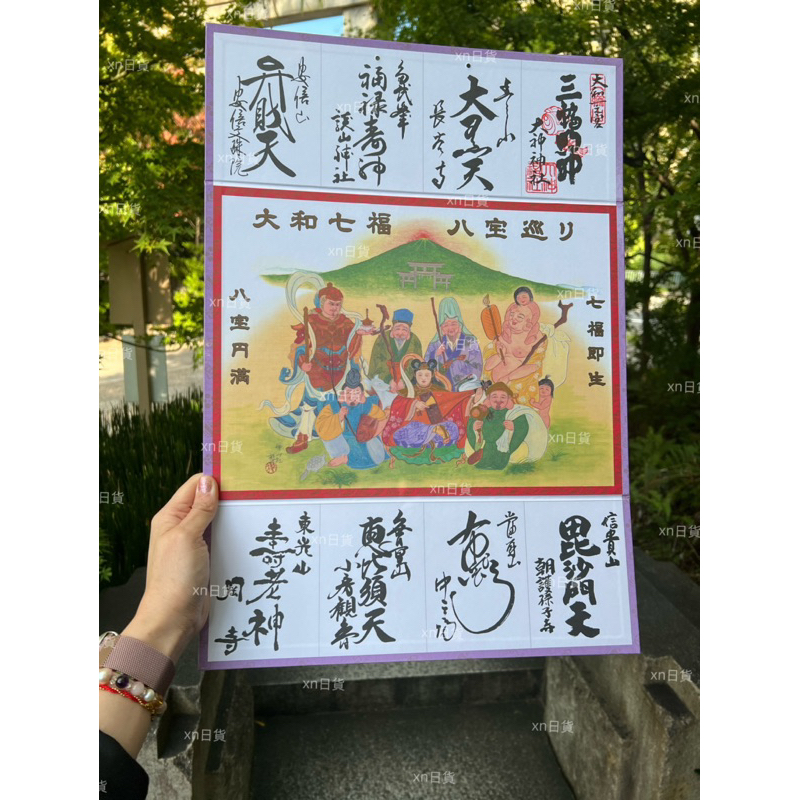 大和七福 八宝巡り
八宝円満
七福即生
大和一之宮
三輪明神
大神神社
大黒天
長岳寺
多武峯
福禄寿神
談山神社
安倍山
弁財天
安倍文殊院
信貴山
毘沙門天
朝護孫子寺
當麻山
布袋
中之坊
恵比須天
小房観音
東光山
寿老神
xn日貨